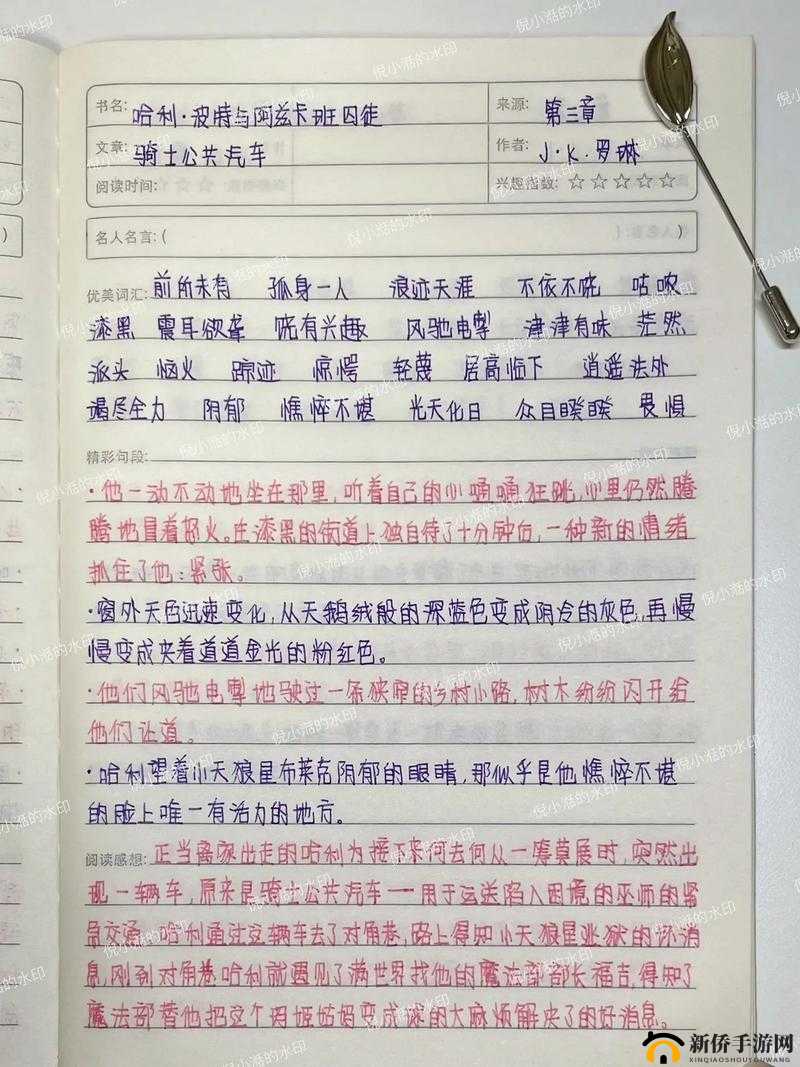 书名: 哈利·波特与阿兹卡班囚徒 来源: 第三章
文章: 骑士公共汽车 作者: J·K·罗琳
阅读时间: 兴趣指数: ☆☆☆☆☆
名人名言: ( )
优美词汇: 前所未有 孤身一人 浪迹天涯 不依不饶 咕哝
漆黑 震耳欲聋 饶有兴趣 风驰电掣 津津有味 茫然
派头 恼火 踪迹 惊愕 轻蔑 居高临下 逍遥法外
竭尽全力 阴郁 憔悴不堪 光天化日 众目睽睽 畏惧
精彩句段:
·他一动不动地坐在那里,听着自己的心嗵嗵狂跳,心里仍然腾
腾地冒着怒火。在漆黑的街道上独自待了十分钟后,一种新的情绪
抓住了他:紧张。
·窗外天色迅速变化,从天鹅绒般的深蓝色变成阴冷的灰色,再慢
慢变成夹着道道金光的粉红色。
·他们风驰电掣地驶过一条狭窄的乡村小路,树木纷纷闪开给
他们让道。
·哈利望着小天狼星布莱克阴郁的眼睛,那似乎是他憔悴不堪
的脸上唯一有活力的地方。
阅读感想: 正当离家出走的哈利为接下来何去何从一筹莫展时,突然出
现一辆车,原来是骑士公共汽车——用于运送陷入困境的巫师的紧
急交通。哈利通过这辆车去了对角巷,路上得知小天狼星越狱的坏消
息,刚到对角巷哈利就遇见了满世界找他的魔法部部长福吉,得知了
魔法部替他把这个玛姬姑妈变成球的大麻烦解决了的好消息。
倪小湉的水印
新侨手游网
XINQIAOSHOUYOUWANG